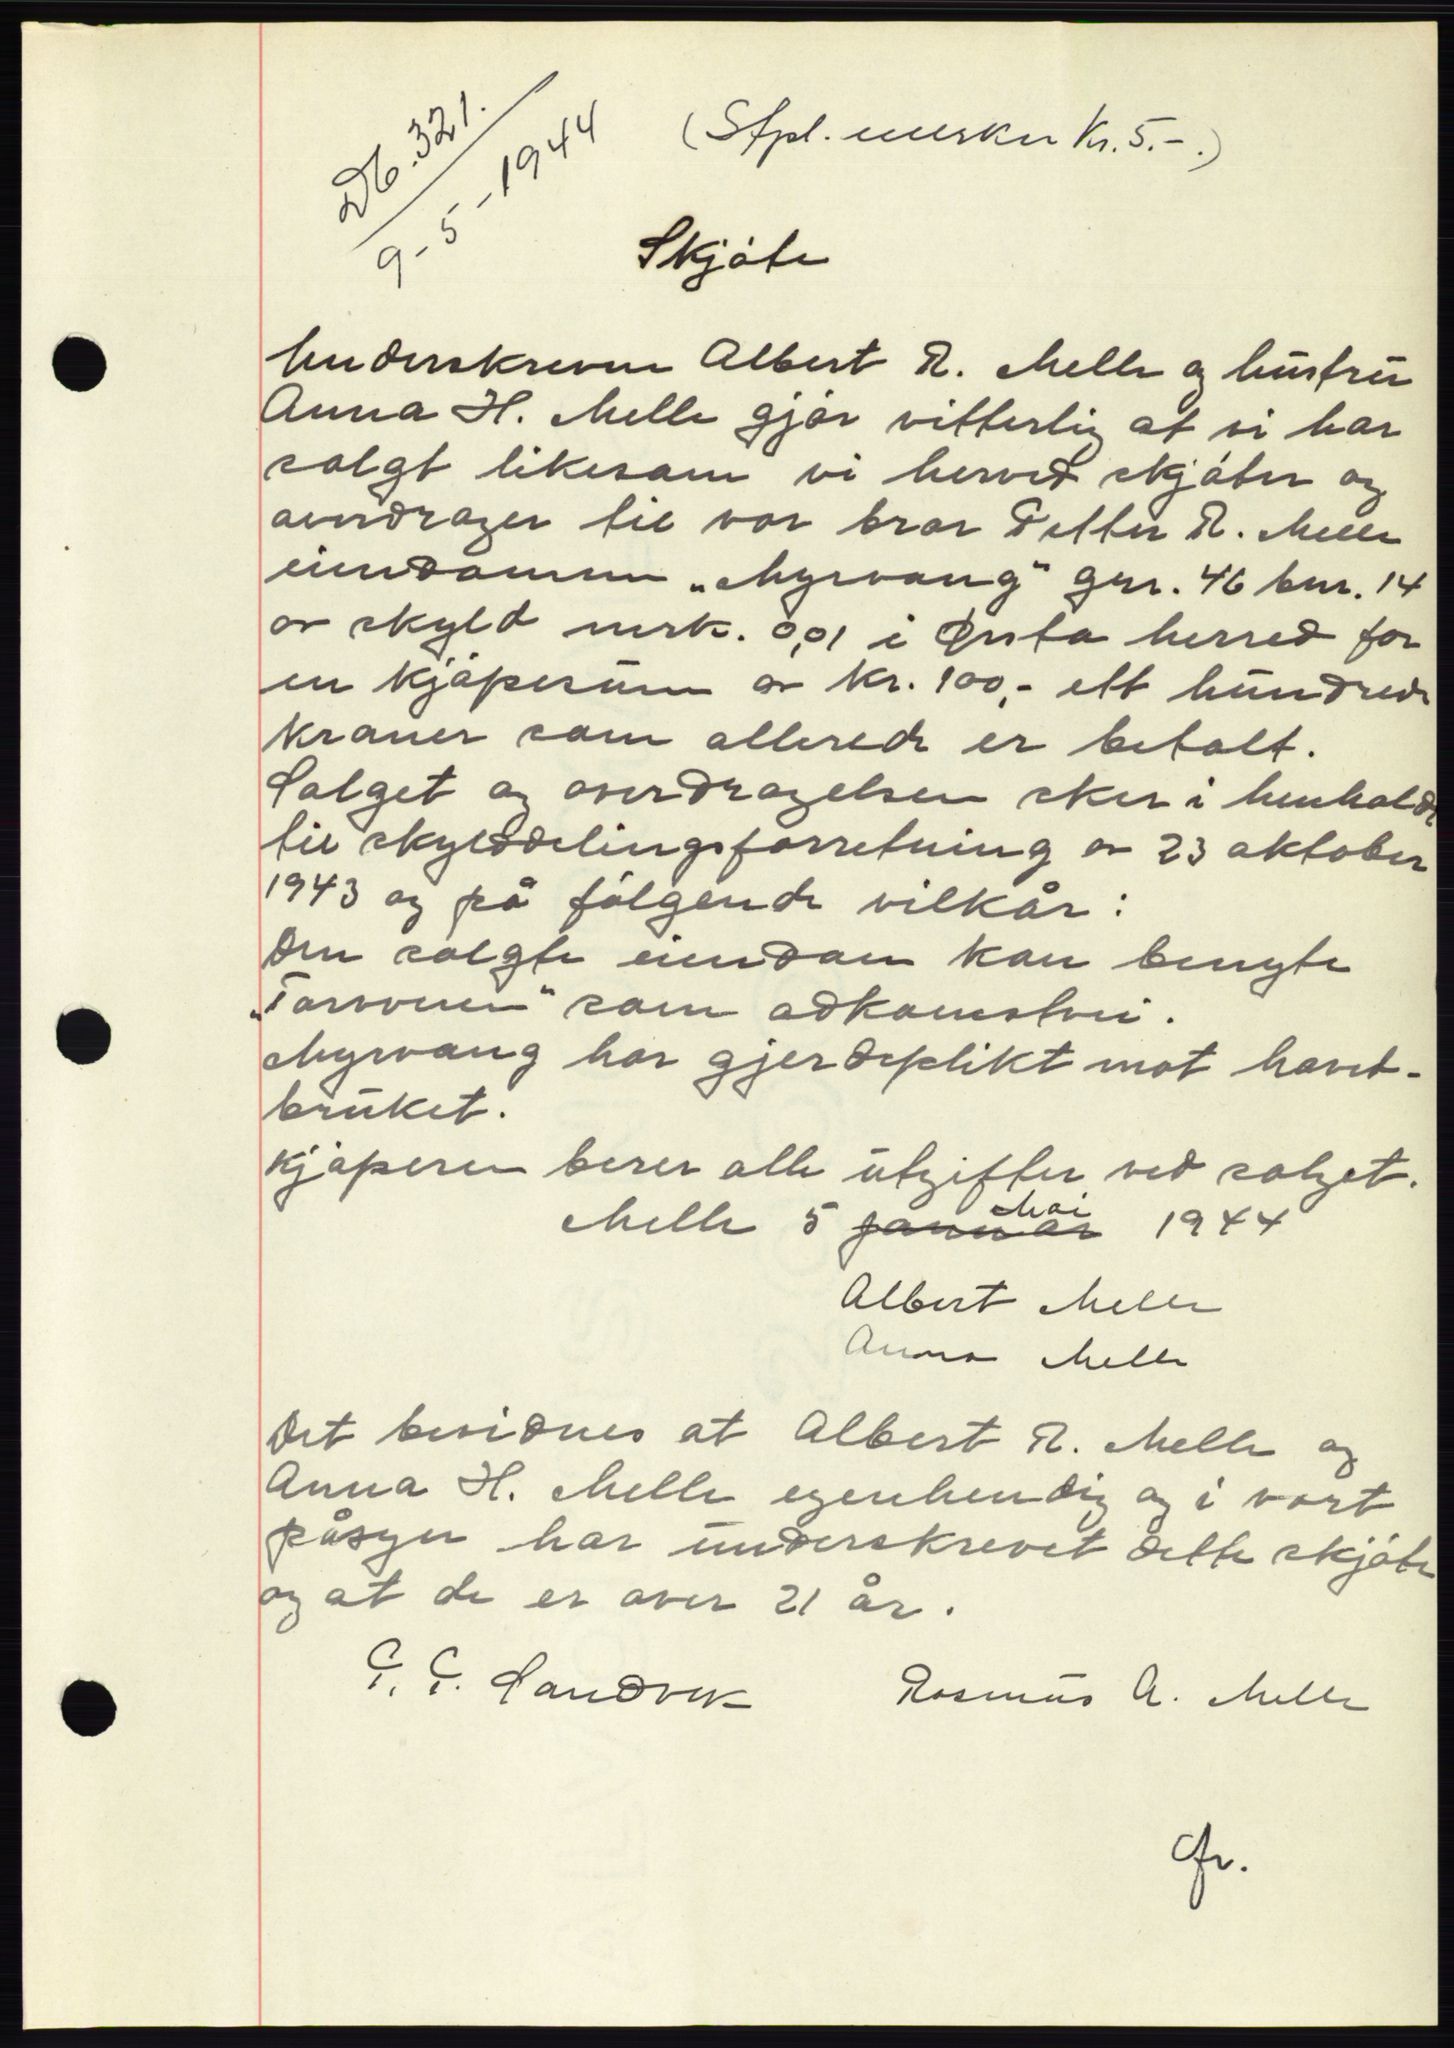 Db. 321.
9-5-1944
(Stpl. merker Kr. 5.-.)
Skjøte
Underskrevne Albert R. Melle og hustru
Anna H. Melle gjør vitterlig at vi har
solgt likesom vi herved skjøter og
overdrager til vor bror Petter R. Melle
eiendommen „Myrvang" gnr. 46 bnr. 14
av skyld mrk. 0,01 i Ørsta herred for
en kjøpesum av kr. 100,- ett hundrede
kroner som allerede er betalt.
Salget og overdragelsen sker i henhold
til skylddelingsforretning av 23 oktober
1943 og på følgende vilkår:
Den solgte eiendom kan benytte
„Torvveien" som adkomstvei.
Myrvang har gjerdeplikt mot hoved-
bruket.
Kjøperen berer alle utgifter ved salget.
Melle 5 januar Mai 1944
Albert Melle
Anna Melle
Det bevidnes at Albert R. Melle og
Anna H. Melle egenhendig og i vort
påsyn har underskrevet dette skjøte
og at de er over 21 år.
Sandvik Rasmus A. Melle